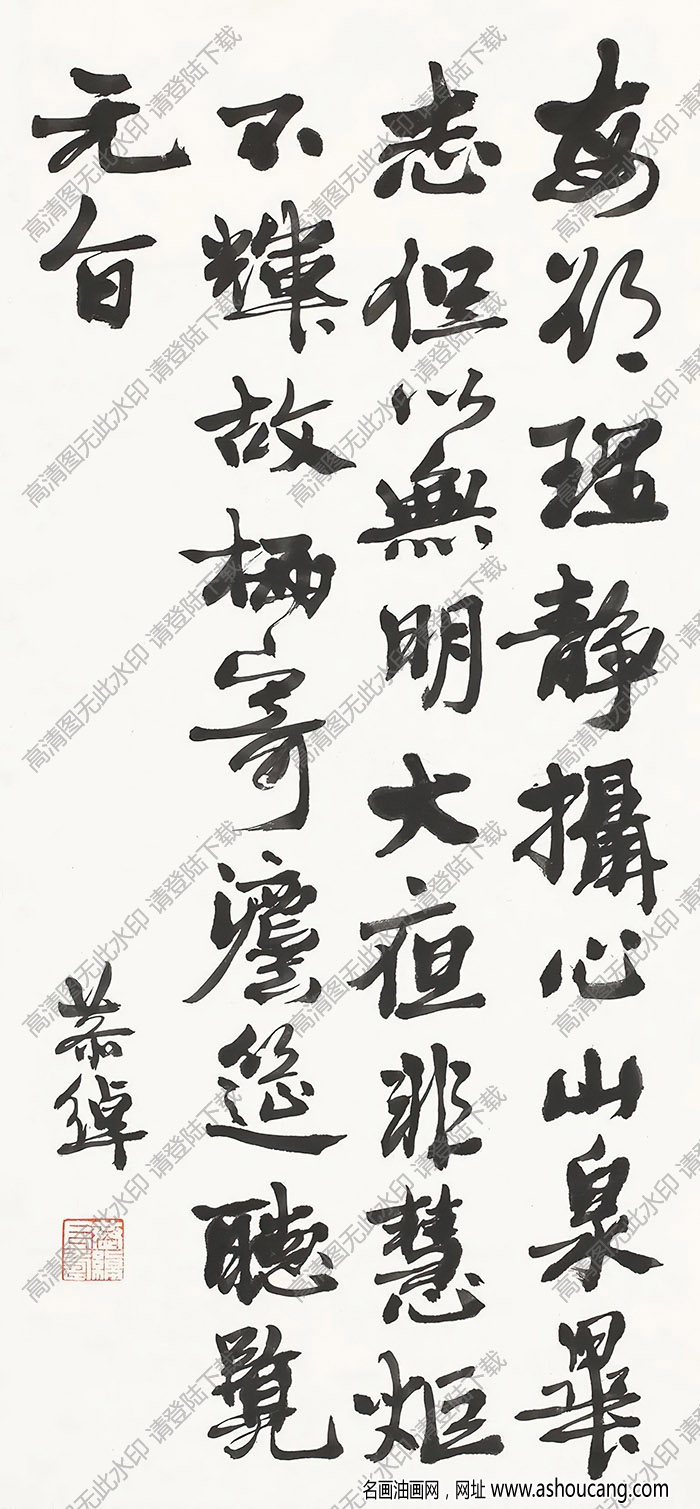 每欲理靜攝心山泉畢
志但以無明大夜非慧炬
不輝故栖寄灋筵聽覽
无
恭綽
高清图无此水印 请登陆下载
名画油画网，网址 www.ashoucang.com